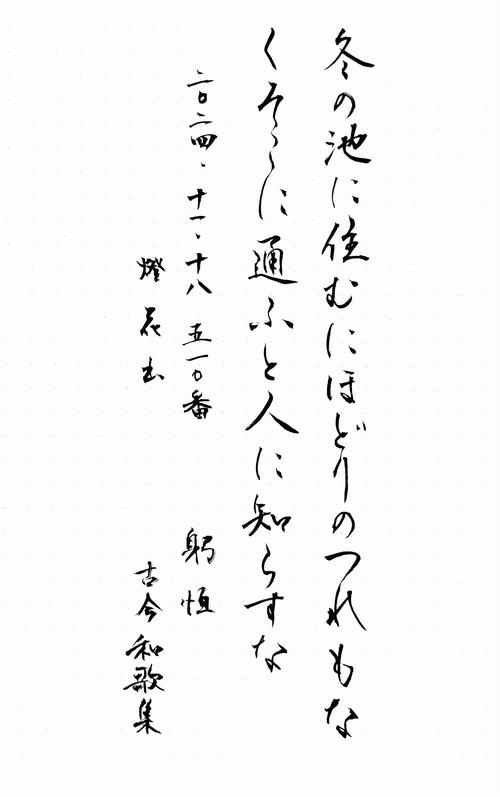 冬の池に住むにほどりのつれもな
くそこに通ふと人に知らすな
二〇二四、十一、十八 五一〇番 躬恒
燈花 古今和歌集